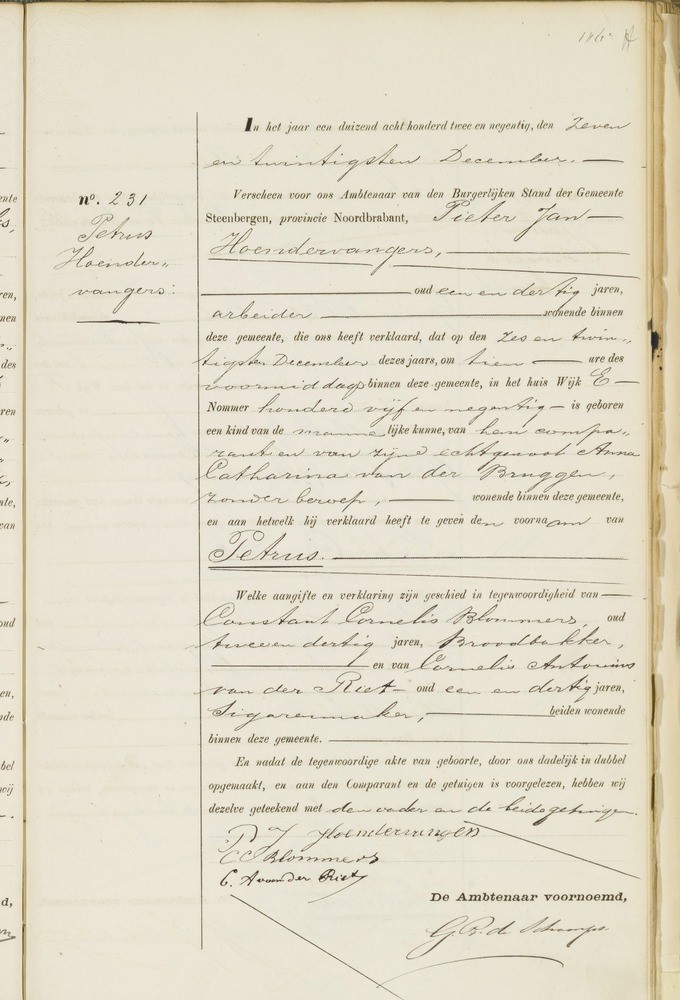 In het jaar een duizend acht honderd twee en negentig, den Zeven
en twintigsten December.
nº. 231
Petrus
Hoender„
vangers:
Verscheen voor ons Ambtenaar van den Burgerlijken Stand der Gemeente
Steenbergen, provincie Noordbrabant, Pieter Jan
Hoendervangers,
oud een en dertig jaren,
arbeider wonende binnen
deze gemeente, die ons heeft verklaard, dat op den Zes en twin„
tigsten December dezes jaars, om tien ure des
voormiddags binnen deze gemeente, in het huis Wijk E
Nommer honderd vijf en negentig is geboren
een kind van de mannelijke kunne, van hem compa„
rant en van zijne echtgenoot Anna
Catharina van der Bruggen,
zonder beroep, wonende binnen deze gemeente,
en aan hetwelk hij verklaard heeft te geven den voornaam van
Petrus.
Welke aangifte en verklaring zijn geschied in tegenwoordigheid van
Constant Cornelis Blommers, oud
twee en dertig jaren, Broodbakker,
en van Cornelis Antonius
van der Riet oud een en dertig jaren,
Sigarenmaker, beiden wonende
binnen deze gemeente.
En nadat de tegenwoordige akte van geboorte, door ons dadelijk in dubbel
opgemaakt, en aan den Comparant en de getuigen is voorgelezen, hebben wij
dezelve geteekend met den vader en de beide getuigen.
P J Hoendervangers
CC Blommers
C. A van der Riet
De Ambtenaar voornoemd,